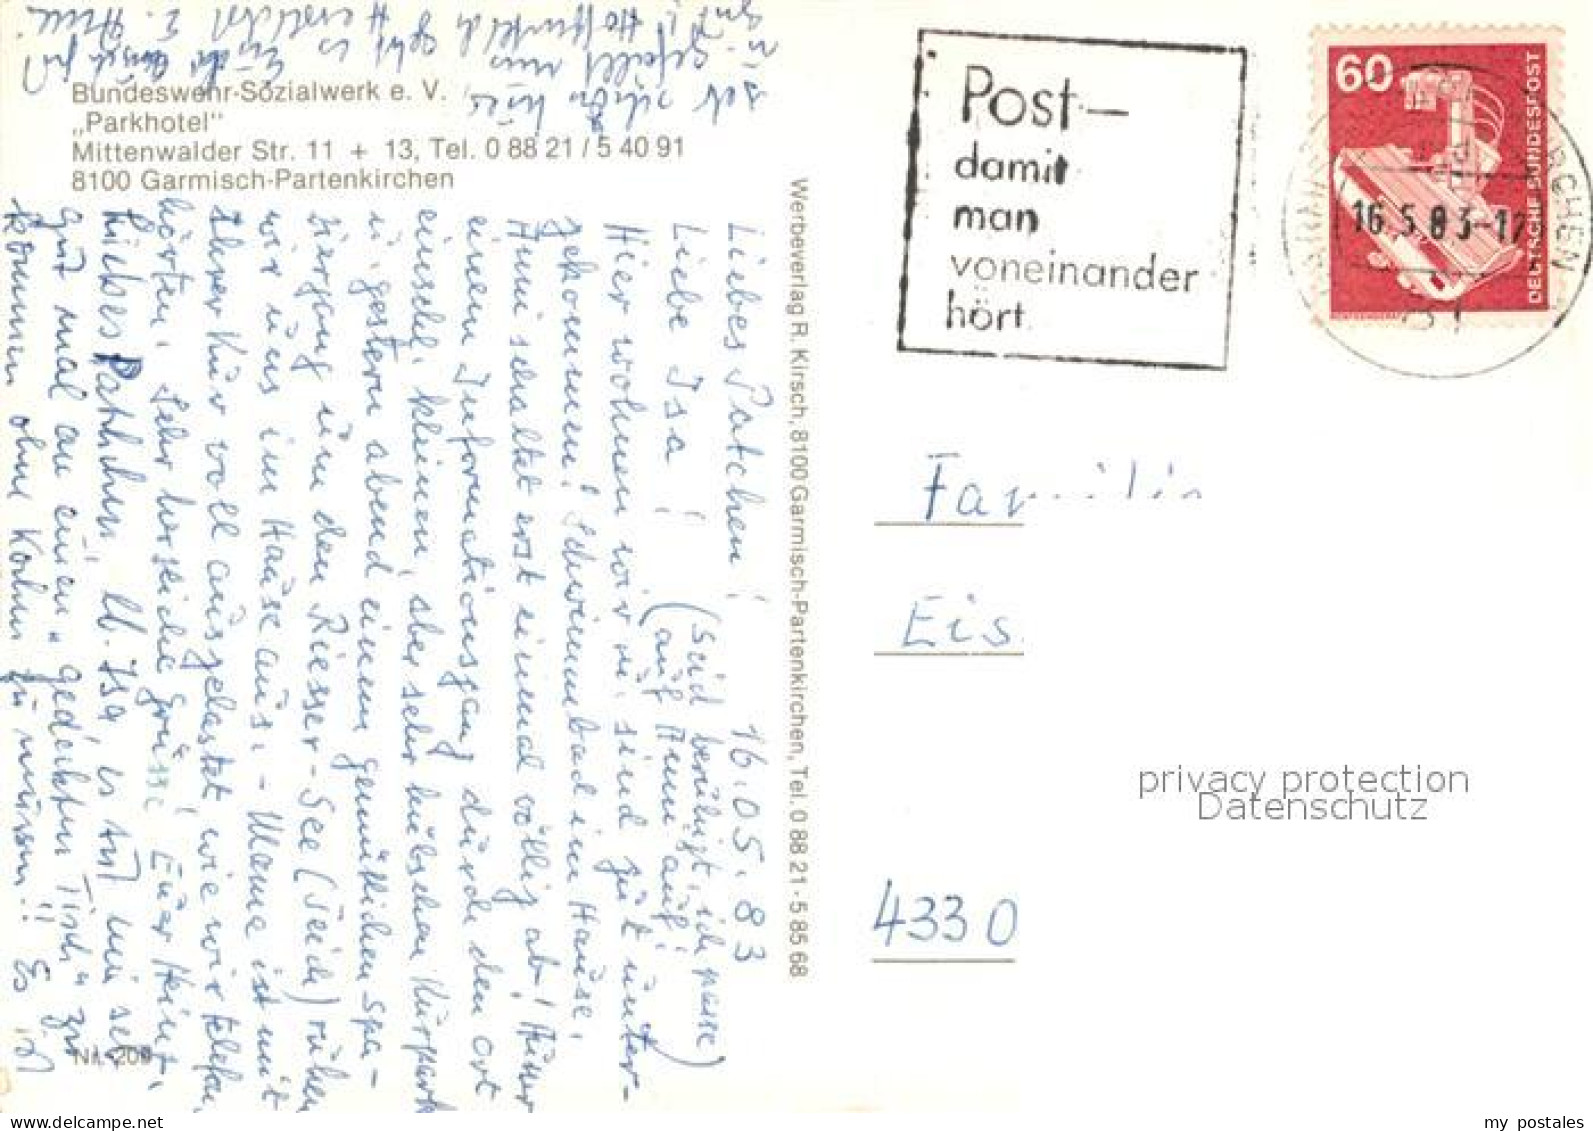 Bundeswehr-Sozialwerk e. V.
„Parkhotel"
Mittenwalder Str. 11 + 13, Tel. 0 88 21 / 5 40 91
8100 Garmisch-Partenkirchen
16.05.83
Liebes Patchen!
Liebe Isa! (seid beruhigt, ich passe
auf Anni auf!)
Hier wohnen wir u. sind gut unter-
gekommen! Schwimmbad im Hause.
Anni schaltet erst einmal völlig ab!
einem Informationsgang durch den Ort
einschl. kleinen, aber sehr hübschen Kurpark
u. gestern abend einem gemütlichen Spa-
ziergang um den Riesser-See (Teich) ruhen
wir uns im Hause aus. - Mama ist mit
Ihrer Kur voll ausgelastet, wie wir telefon.
hörten. Sehr herzliche Grüsse Euer Heinz.
Liebes Patchen, lb. Isa, es tut mir sehr
gut mal an einen „gedeckten Tisch" zu
kommen ohne Kochen zu müssen!! Es ist
sehr schön hier,
gefällt uns
Werbeverlag R. Kirsch, 8100 Garmisch-Partenkirchen, Tel. 0 88 21 - 5 85 68
Nr. 209
Post –
damit
man
voneinander
hört.
60
DEUTSCHE BUNDESPOST
16.5.83-17
81
Familie
Eis
4330
privacy protection
Datenschutz
www.delcampe.net
my postales